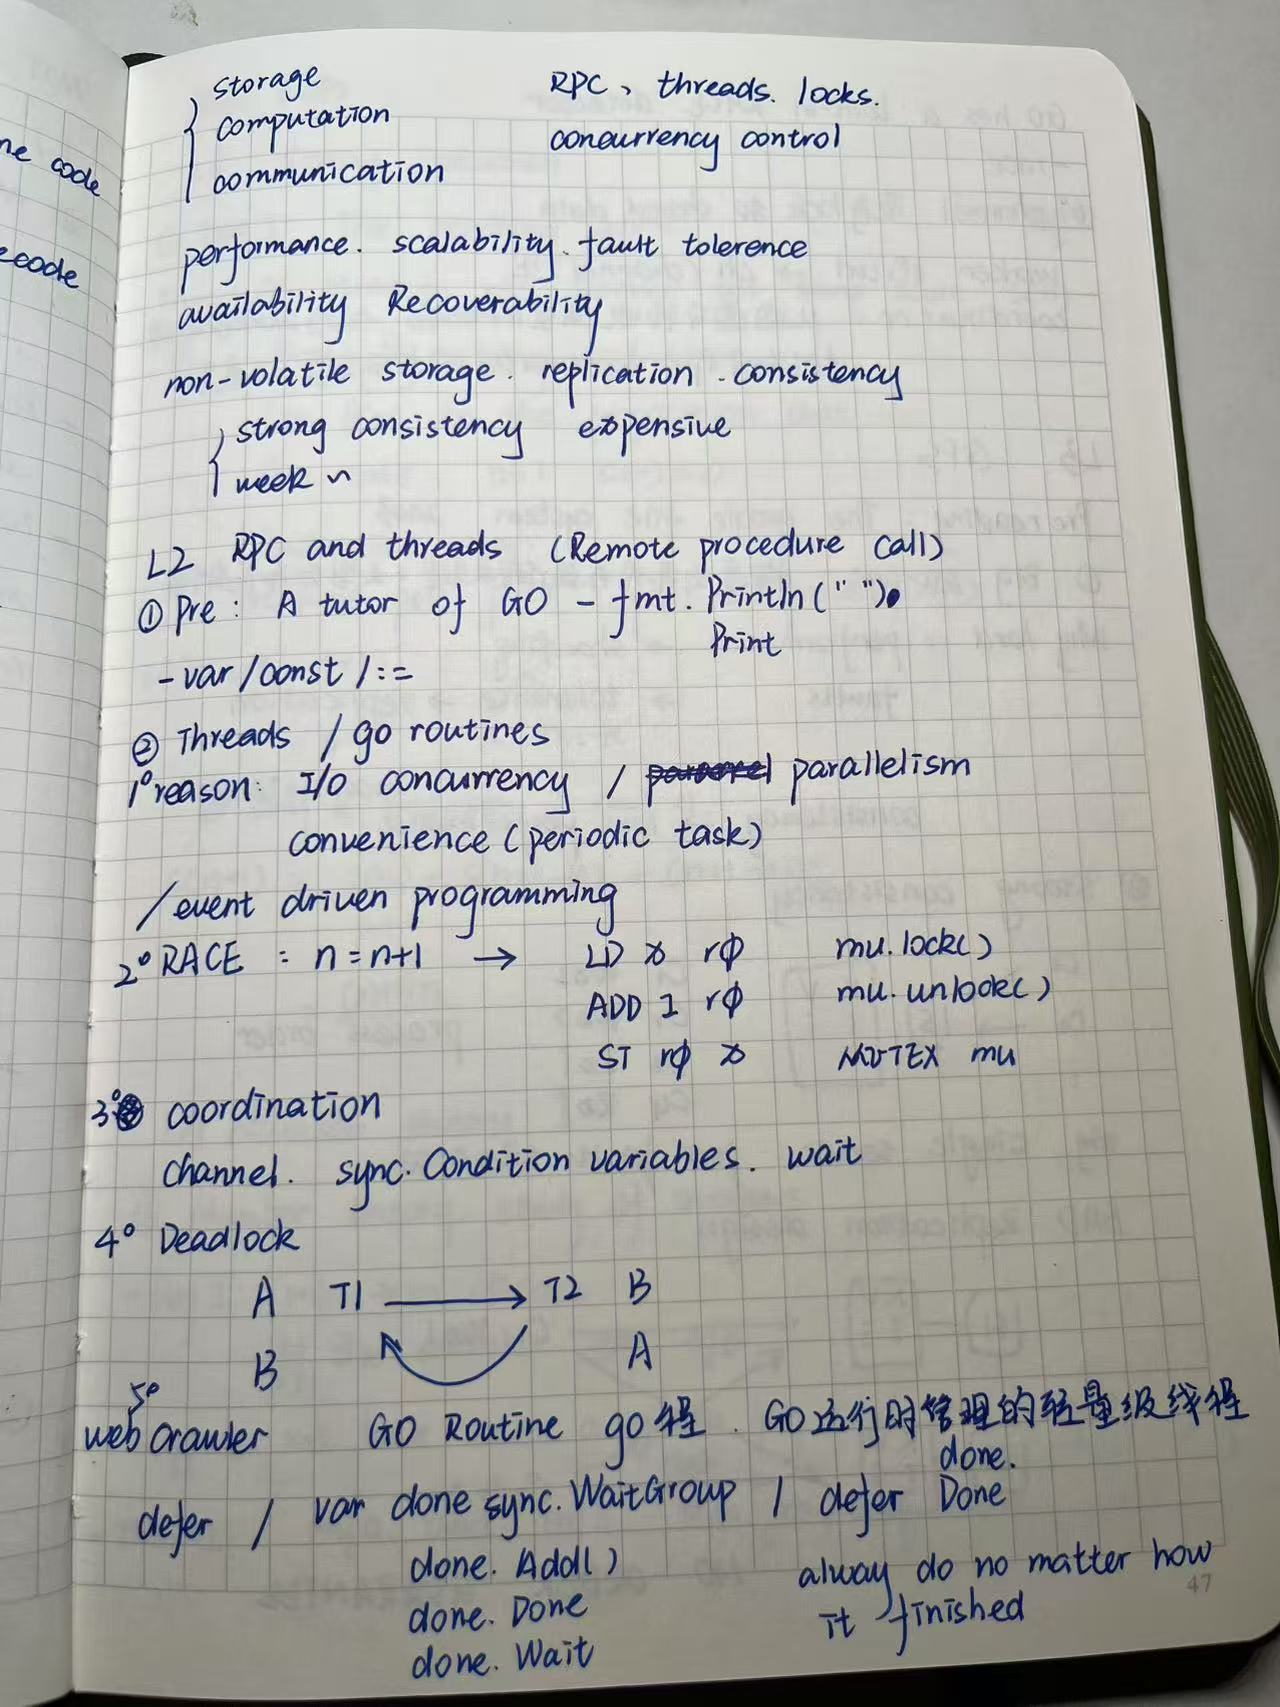 ne code
ecode
storage
computation
communication
RPC、threads. locks.
concurrency control
performance. scalability. fault tolerence
availability Recoverability
non-volatile storage. replication. consistency
strong consistency expensive
week ~
L2 RPC and threads (Remote procedure call)
① Pre: A tutor of GO - fmt. Println(" ").
Print
- var / const / :=
② Threads / go routines
1° reason: I/O concurrency / parallelism
convenience (periodic task)
/ event driven programming
2° RACE : n = n+1 → LD x rφ mu.lock()
ADD 1 rφ mu.unlock()
ST rφ x MUTEX mu
3° coordination
channel. sync. Condition variables. wait
4° Deadlock
A T1 → T2 B
B A
5°
web crawler GO Routine go程. GO运行时管理的轻量级线程
done.
defer / var done sync.WaitGroup / defer Done
done. Add()
done. Done
done. Wait
alway do no matter how
it finished
47